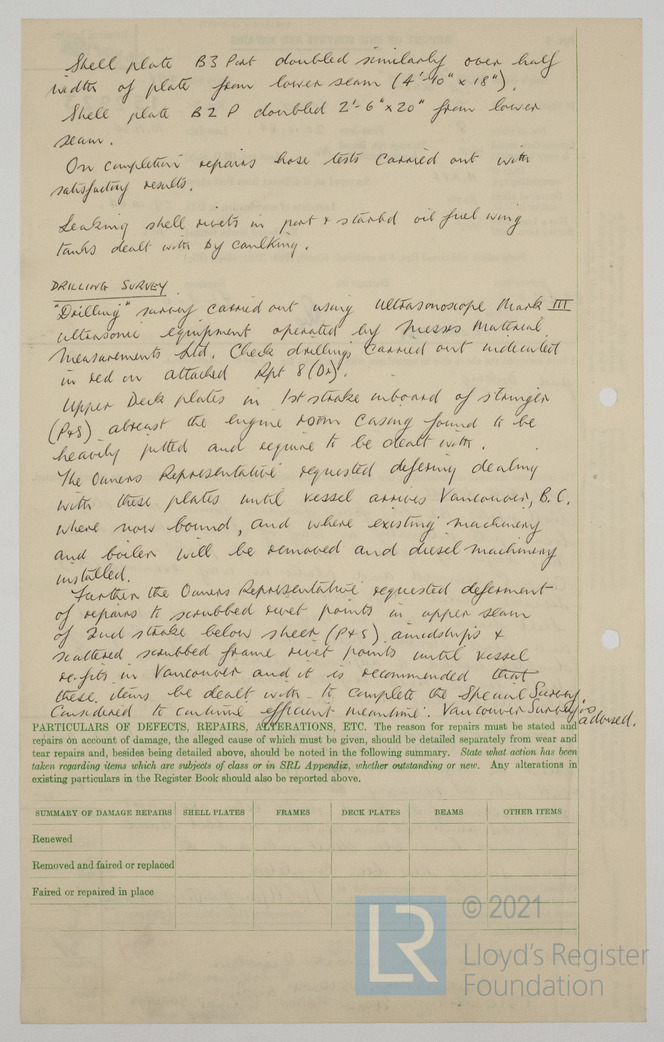 Shell plate B3 Port doubled similarly over half
width of plate from lower seam (4'-10" x 18").
Shell plate B2P doubled 2'-6" x 20" from lower
seam.
On completion repairs hose tests carried out with
satisfactory results.
Leaking shell rivets in port & starbd oil fuel wing
tanks dealt with by caulking.
DRILLING SURVEY.
"Drilling" survey carried out using Ultrasonoscope Mark III
ultrasonic equipment operated by Messrs Material
Measurements Ltd. Check drillings carried out indicated
in red on attached Rpt 8(Dr).
Upper Deck plates in 1st strake inboard of stringer
(P&S) abreast the engine room casing found to be
heavily pitted and require to be dealt with.
The Owners Representative requested defering dealing
with these plates until vessel arrives Vancouver, B.C.
where now bound, and where existing machinery
and boiler will be removed and diesel machinery
installed.
Further the Owners Representative requested deferment
of repairs to scrubbed rivet points in upper seam
of 2nd strake below sheer (P&S) amidships &
scattered scrubbed frame rivet points until vessel
re-fits in Vancouver and it is recommended that
these items be dealt with to complete the Special Survey.
Considered to continue efficient meantime. Vancouver Surveyors advised.
PARTICULARS OF DEFECTS, REPAIRS, ALTERATIONS, ETC. The reason for repairs must be stated and
repairs on account of damage, the alleged cause of which must be given, should be detailed separately from wear and
tear repairs and, besides being detailed above, should be noted in the following summary. State what action has been
taken regarding items which are subjects of class or in SRL Appendix, whether outstanding or new. Any alterations in
existing particulars in the Register Book should also be reported above.
SUMMARY OF DAMAGE REPAIRS SHELL PLATES FRAMES DECK PLATES BEAMS OTHER ITEMS
Renewed
Removed and faired or replaced
Faired or repaired in place
LR
© 2021
Lloyd's Register
Foundation